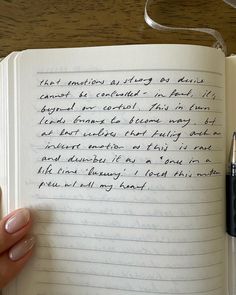 that emotions as strong as desire
cannot be controlled - in fact, it's
beyond our control. This in turn
leads to become wary, but
at last realises that feeling such an
intense emotion as this is rare
and describes it as a "once in a
life time luxury". I loved this written
piece w/ all my heart.